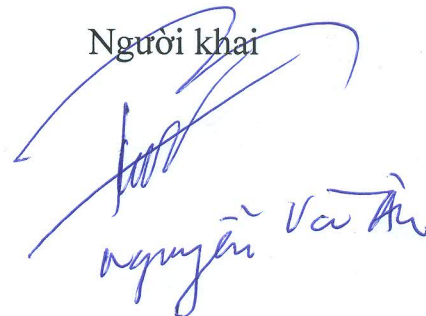 Người khai
Nguyễn Văn Ân